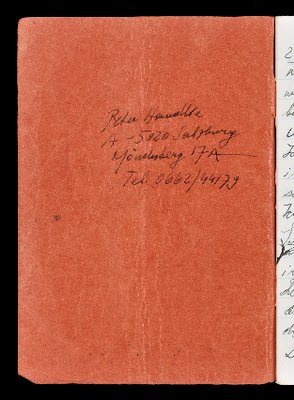 Peter Handke
A - 5020 Salzburg
Mönchsberg 17A
Tel. 0662/44179